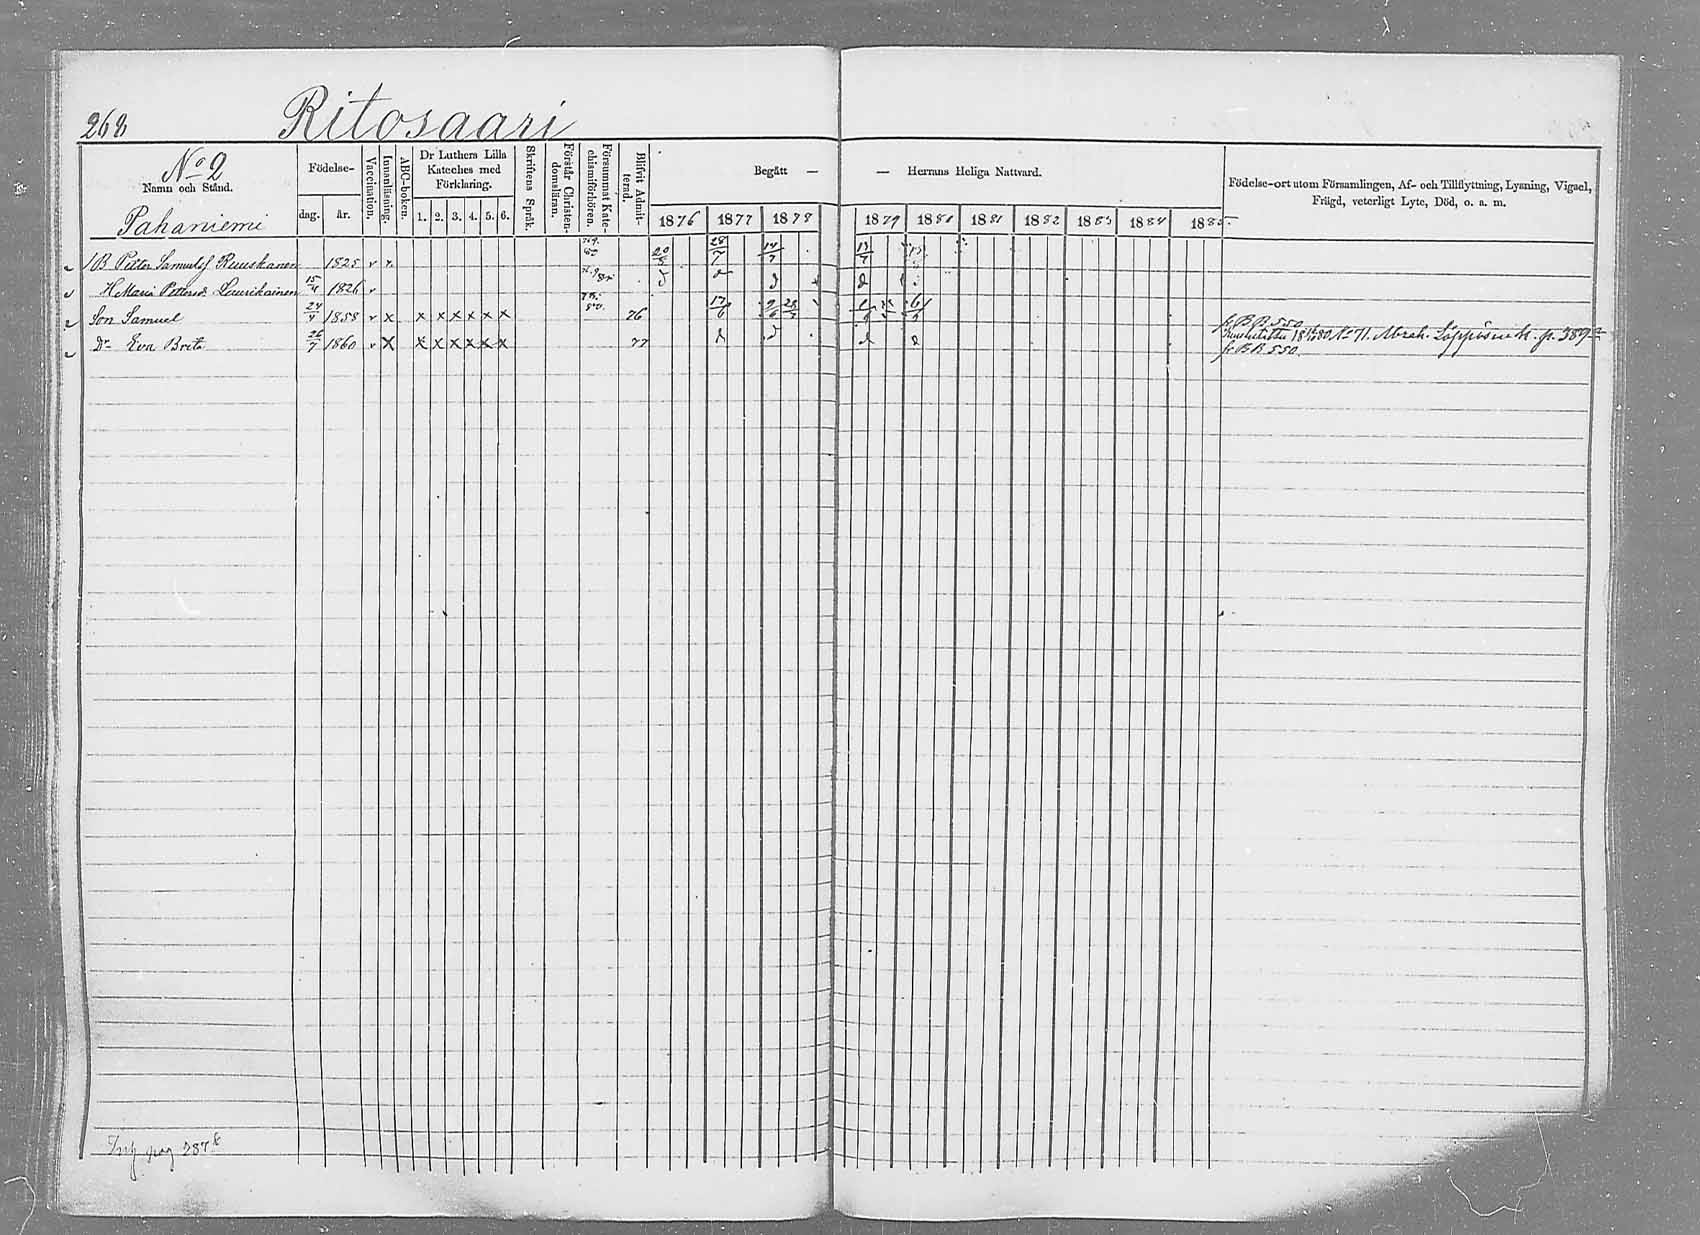 268 Ritosaari
No 2
Namn och Stånd.
Pahaniemi
Födelse-
dag. år.
Vaccination.
Innanläsning.
ABC-boken.
Dr Luthers Lilla Kateches med Förklaring.
1. 2. 3. 4. 5. 6.
Skriftens Språk.
Förstår Christendomsläran.
Försummat Katechismiförhören.
Blifvit Admitterad.
Begått — — Herrans Heliga Nattvard.
1876 1877 1878 1879 1880 1881 1882 1883 1884 1885
Födelse-ort utom Församlingen, Af- och Tillflyttning, Lysning, Vigsel,
Frägd, veterligt Lyte, Död, o. a. m.
B Petter Samuelsf Ruuskanen 1825 v x 28/7 14/7 13/7
H Maria Pettersd. Laurikainen 15/4 1826 v d d d
Son Samuel 24/4 1858 v x x x x x x x 76 17/6 fr. B.B. 550
Dr Eva Brita 26/7 1860 v x x x x x x x 77 d d d d No 71. p. 389
fr. B.B. 550
pag 287